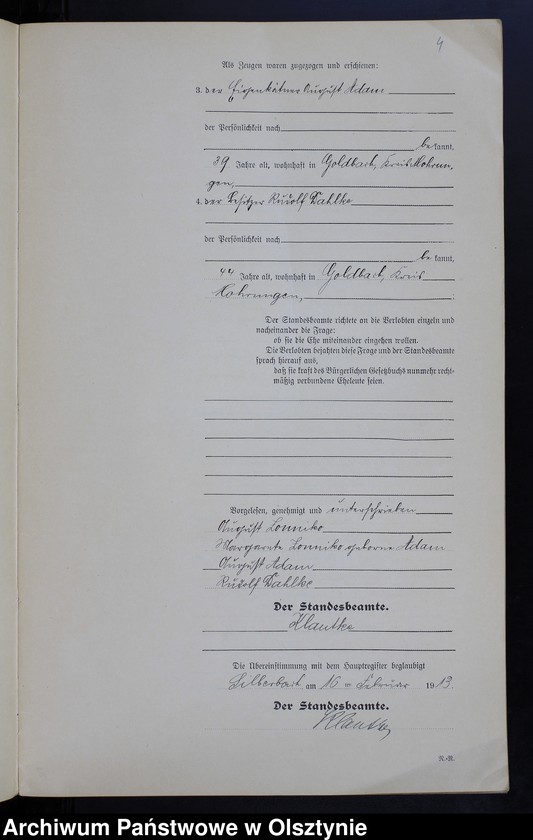 4
Als Zeugen waren zugezogen und erschienen:
3. der Eigenkätner August Adam
der Persönlichkeit nach
be kannt,
39 Jahre alt, wohnhaft in Goldbach, Kreis Mohrun-
gen,
4. der Besitzer Rudolf Dahlke
der Persönlichkeit nach
be kannt,
44 Jahre alt, wohnhaft in Goldbach, Kreis
Mohrungen,
Der Standesbeamte richtete an die Verlobten einzeln und
nacheinander die Frage:
ob sie die Ehe miteinander eingehen wollen.
Die Verlobten bejahten diese Frage und der Standesbeamte
sprach hierauf aus,
daß sie kraft des Bürgerlichen Gesetzbuchs nunmehr recht-
mäßig verbundene Eheleute seien.
Vorgelesen, genehmigt und unterschrieben
August Lonniko
Margarete Lonniko geborne Adam
August Adam
Rudolf Dahlke
Der Standesbeamte.
Klautke
Die Übereinstimmung mit dem Hauptregister beglaubigt
Silberbach am 16 Februar 1913.
Der Standesbeamte.
Klautke
N.-R.
Archiwum Państwowe w Olsztynie